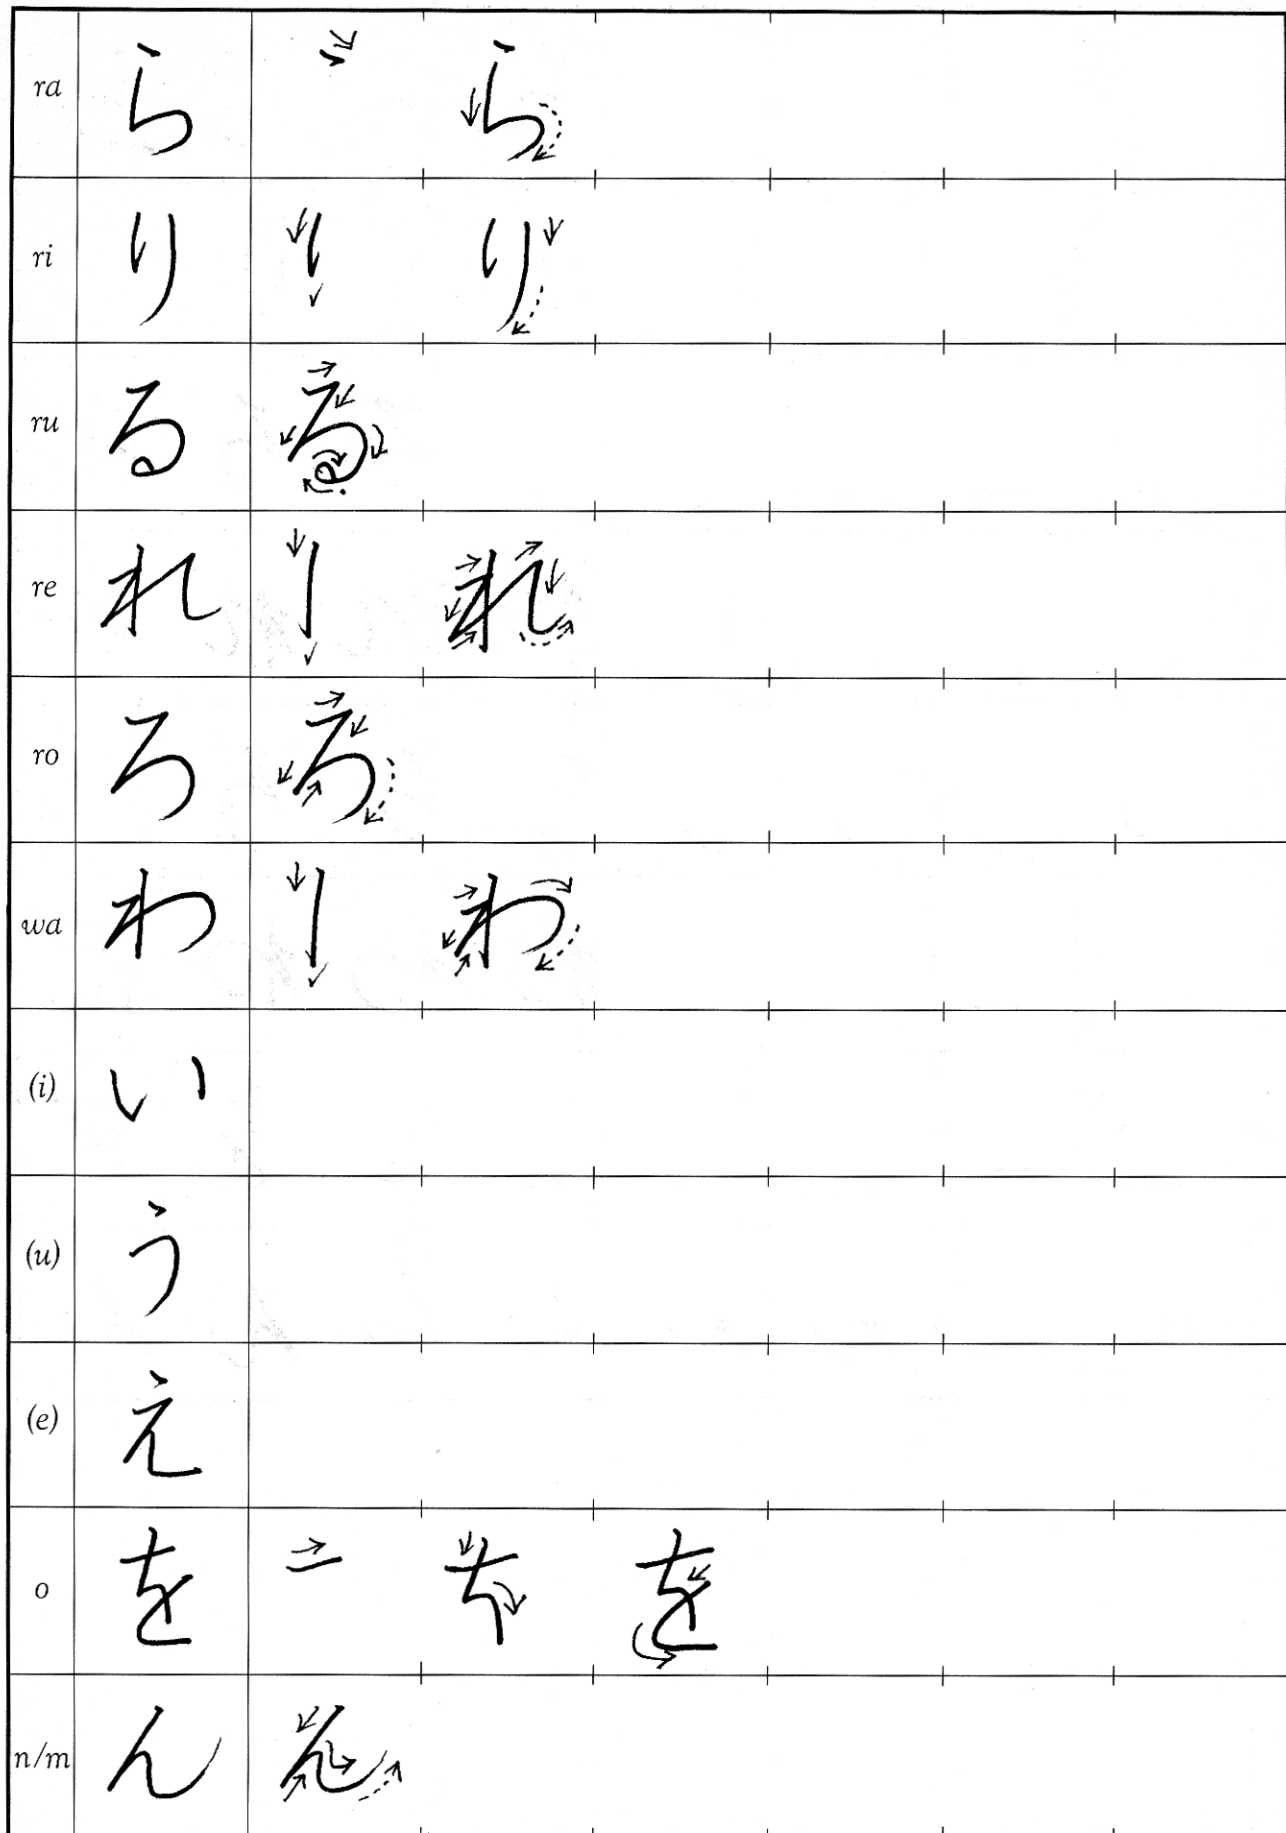 ra ら ら
ri り り
ru る る
re れ れ
ro ろ ろ
wa わ わ
(i) い
(u) う
(e) え
o を を
n/m ん ん